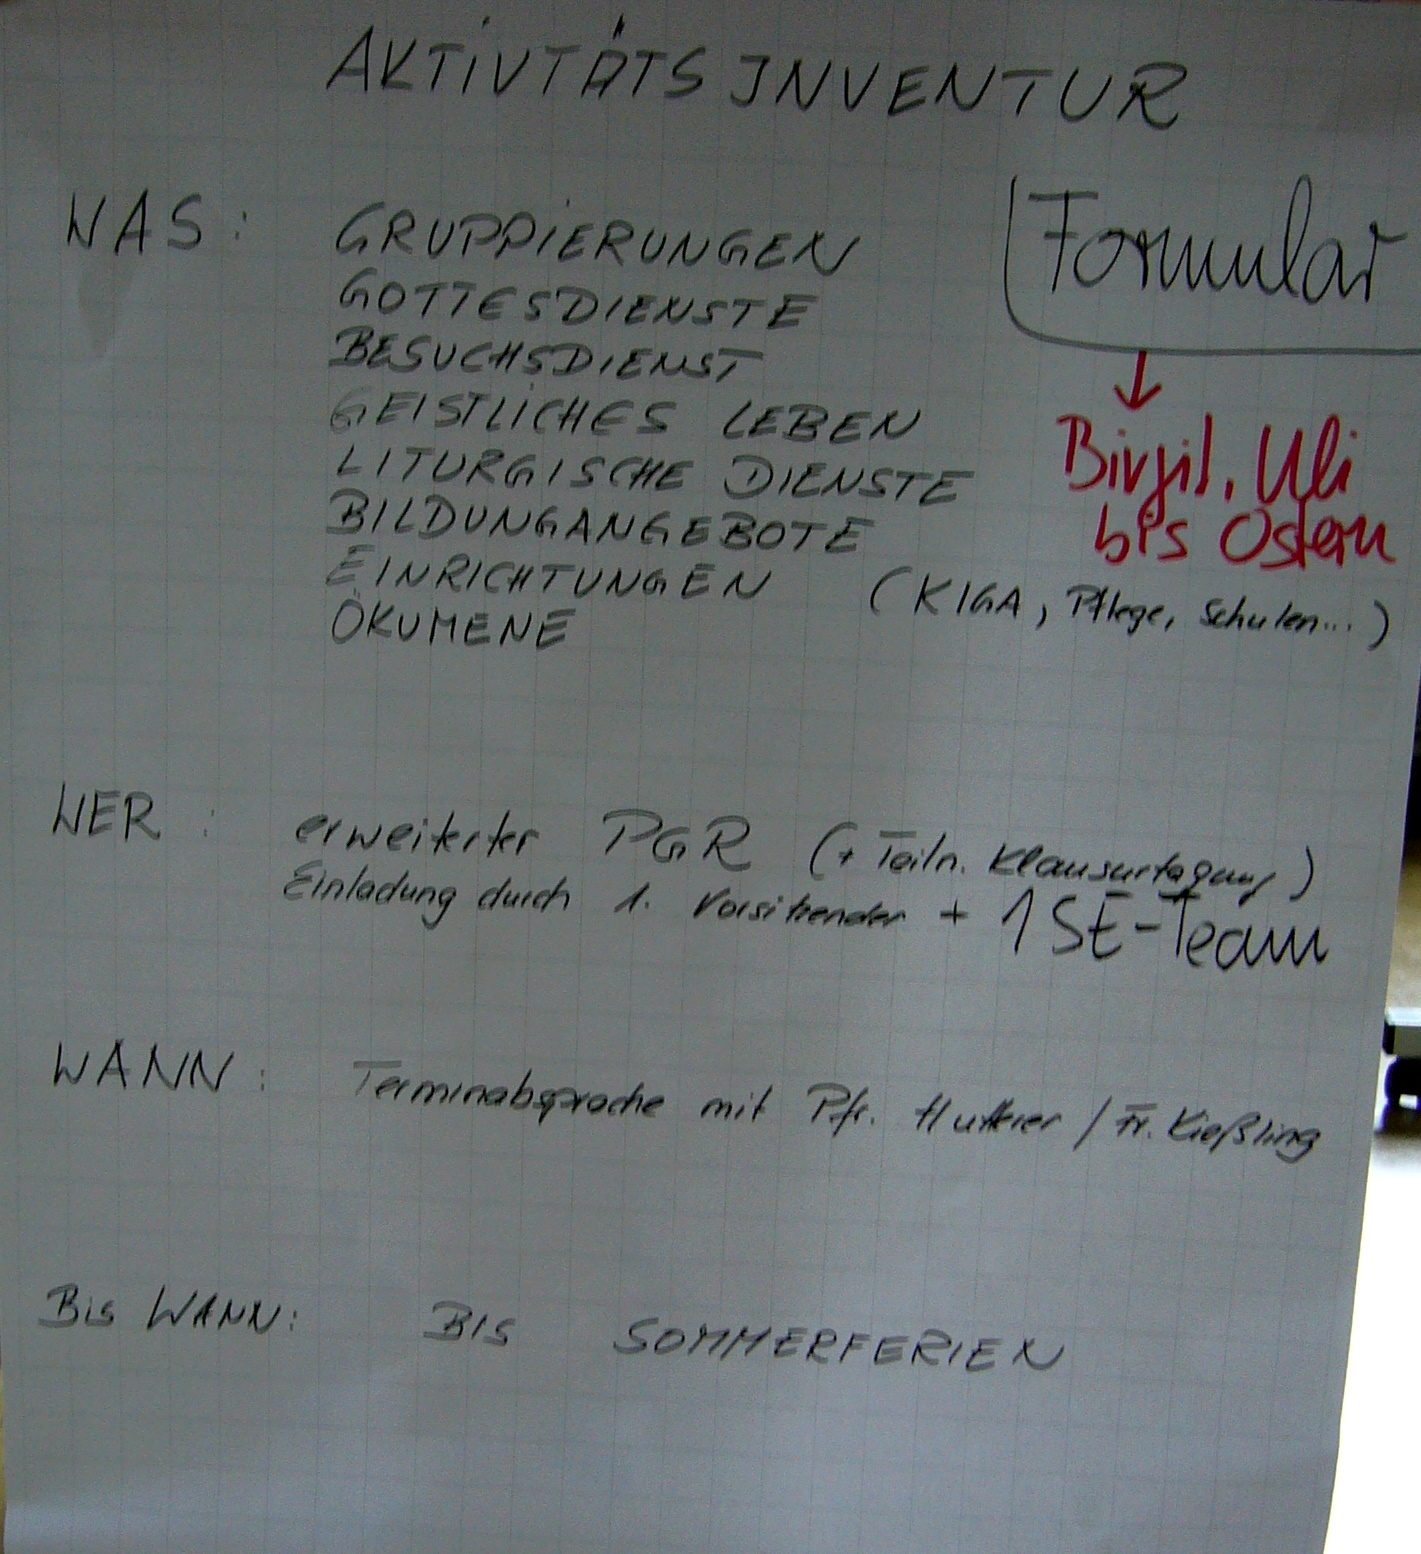 AKTIVTÄTS INVENTUR
WAS: GRUPPIERUNGEN
Formular
GOTTESDIENSTE
BESUCHSDIENST
GEISTLICHES LEBEN
LITURGISCHE DIENSTE
BILDUNGANGEBOTE
EINRICHTUNGEN (KIGA, Pflege, Schulen...)
ÖKUMENE
Birgil, Uli
bis Ostern
WER: erweiterter PGR (+ Teiln. Klausurtagung)
Einladung durch 1. Vorsitzender + 1 SE-Team
WANN: Terminabsprache mit Pfr. Hutterer / Fr. Kießling
Bis WANN: BIS SOMMERFERIEN